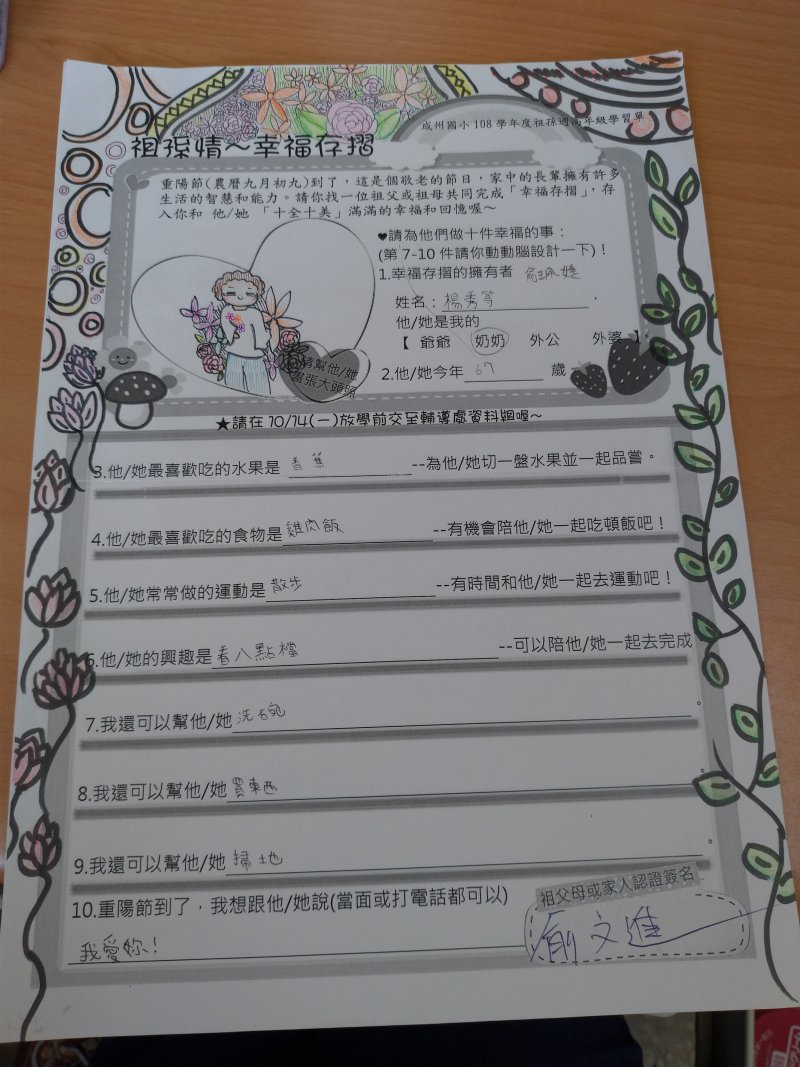 成州國小 108 學年度祖孫週高年級學習單
祖孫情～幸福存摺
重陽節(農曆九月初九)到了，這是個敬老的節日，家中的長輩擁有許多
生活的智慧和能力。請你找一位祖父或祖母共同完成「幸福存摺」，存
入你和 他/她 「十全十美」滿滿的幸福和回憶喔～
♥請為他們做十件幸福的事：
(第 7-10 件請你動動腦設計一下)！
1.幸福存摺的擁有者
姓名：楊秀等，
他/她是我的
【 爺爺 奶奶 外公 外婆 】。
2.他/她今年 67 歲
請幫他/她
畫張大頭照
★請在 10/14(一)放學前交至輔導處資料組喔～
3.他/她最喜歡吃的水果是 香蕉 --為他/她切一盤水果並一起品嘗。
4.他/她最喜歡吃的食物是雞肉飯--有機會陪他/她一起吃頓飯吧！
5.他/她常常做的運動是散步--有時間和他/她一起去運動吧！
6.他/她的興趣是看八點檔--可以陪他/她一起去完成
。
7.我還可以幫他/她洗碗。
8.我還可以幫他/她買東西。
9.我還可以幫他/她掃地。
10.重陽節到了，我想跟他/她說(當面或打電話都可以)
我愛妳！
祖父母或家人認證簽名
俞文進